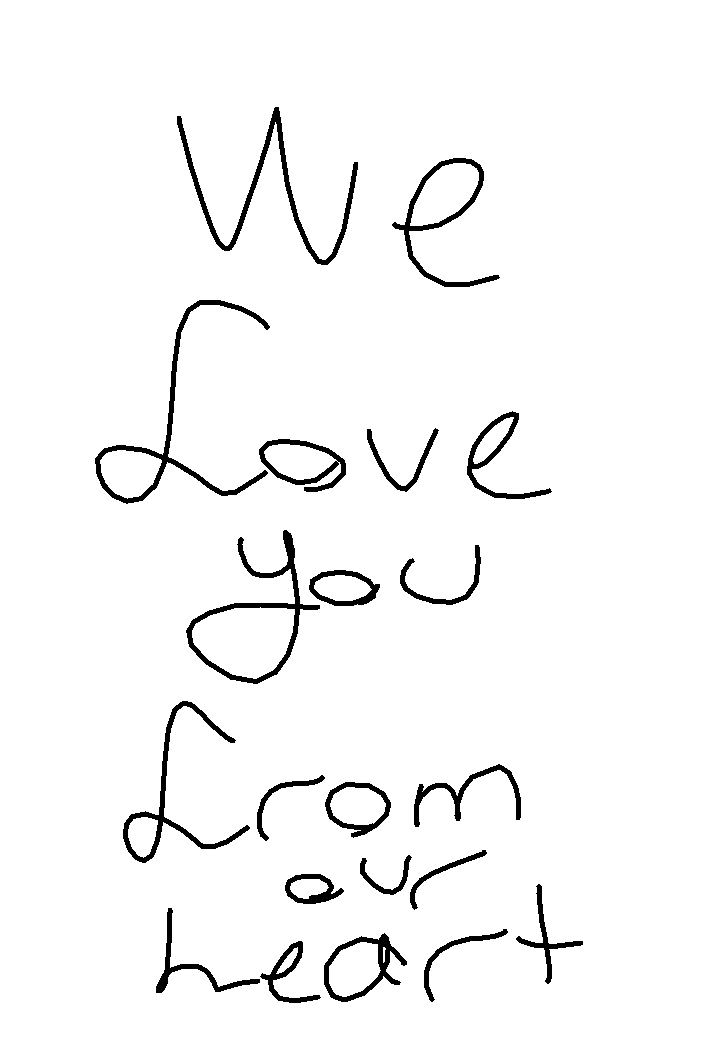 We
Love
you
from
our
heart